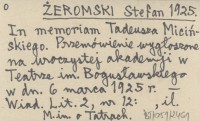 0 ŻEROMSKI Stefan 1925.
In memoriam Tadeusza Miciń-
skiego. Przemówienie wygłoszone
na uroczystej akademji w
Teatrze im. Bogusławskiego
w dn. 6 marca 1925 r.
Wiad. Lit. 2, nr 12: , il
M. in o Tatrach.